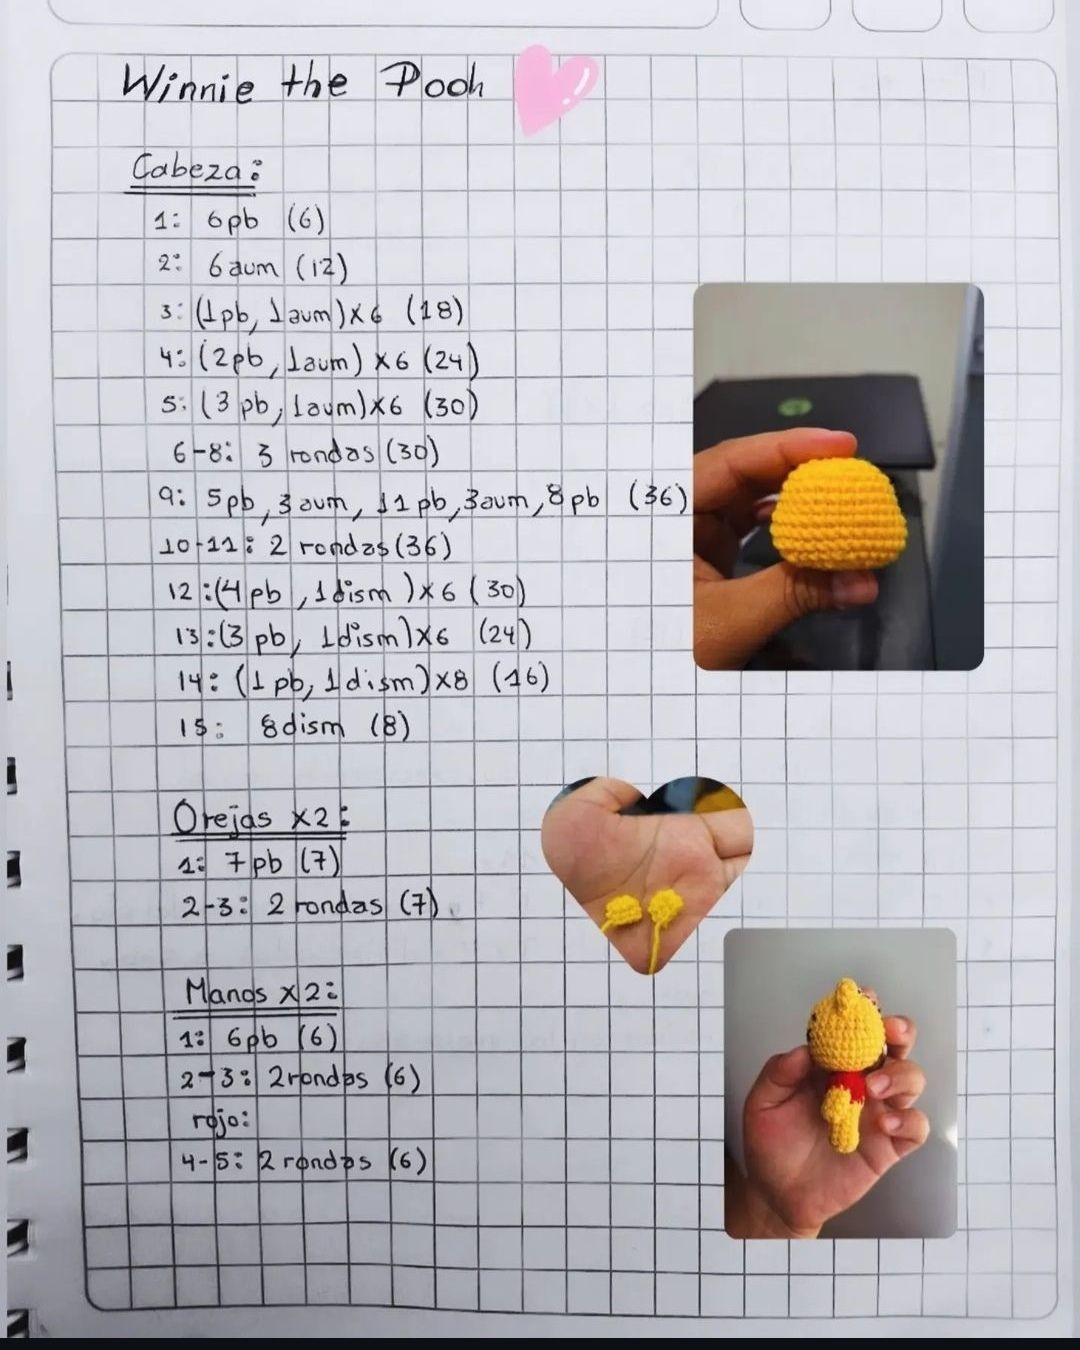 Winnie the Pooh
Cabeza:
1: 6pb (6)
2: 6aum (12)
3: (1pb, 1aum)x6 (18)
4: (2pb, 1aum) x6 (24)
5: (3pb, 1aum)x6 (30)
6-8: 3 rondas (30)
9: 5pb, 3aum, 11pb, 3aum, 8pb (36)
10-11: 2 rondas (36)
12: (4pb, 1dism)x6 (30)
13: (3pb, 1dism)x6 (24)
14: (1pb, 1dism)x8 (16)
15: 8dism (8)
Orejas x2:
1: 7pb (7)
2-3: 2 rondas (7)
Manos x2:
1: 6pb (6)
2-3: 2rondas (6)
rojo:
4-5: 2 rondas (6)